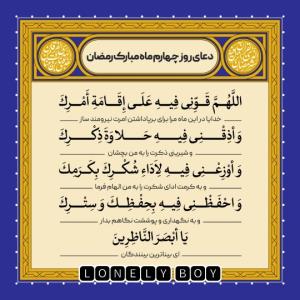 دعای روز چهارم ماه مبارک رمضان
اللَّهُمَّ قَوِّنِي فِيهِ عَلَى إِقَامَةِ أَمْرِكَ
خدایا در این ماه مرا برای برپاداشتن امرت نیرومند ساز
وَ أَذِقْنِي فِيهِ حَلاوَةَ ذِكْرِكَ
و شیرینی ذکرت را به من بچشان
وَ أَوْزِعْنِي فِيهِ لِأَدَاءِ شُكْرِكَ بِكَرَمِكَ
و به کرمت ادای شکرت را به من الهام فرما
وَ احْفَظْنِي فِيهِ بِحِفْظِكَ وَ سِتْرِكَ
و به نگهداری و پوششت نگاهم بدار
يَا أَبْصَرَ النَّاظِرِينَ
ای بیناترین بینندگان
LONELY BOY